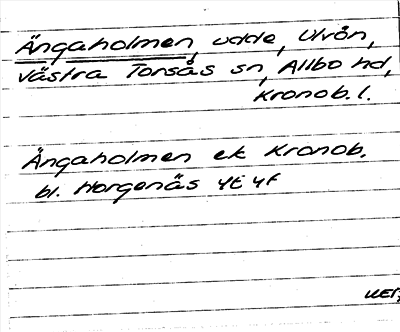 Ängaholmen, udde, Ulvön,
Västra Torsås sn, Allbo hd,
Kronob. l.
Ängaholmen ek Kronob.
bl. Horgenäs 4E 4f